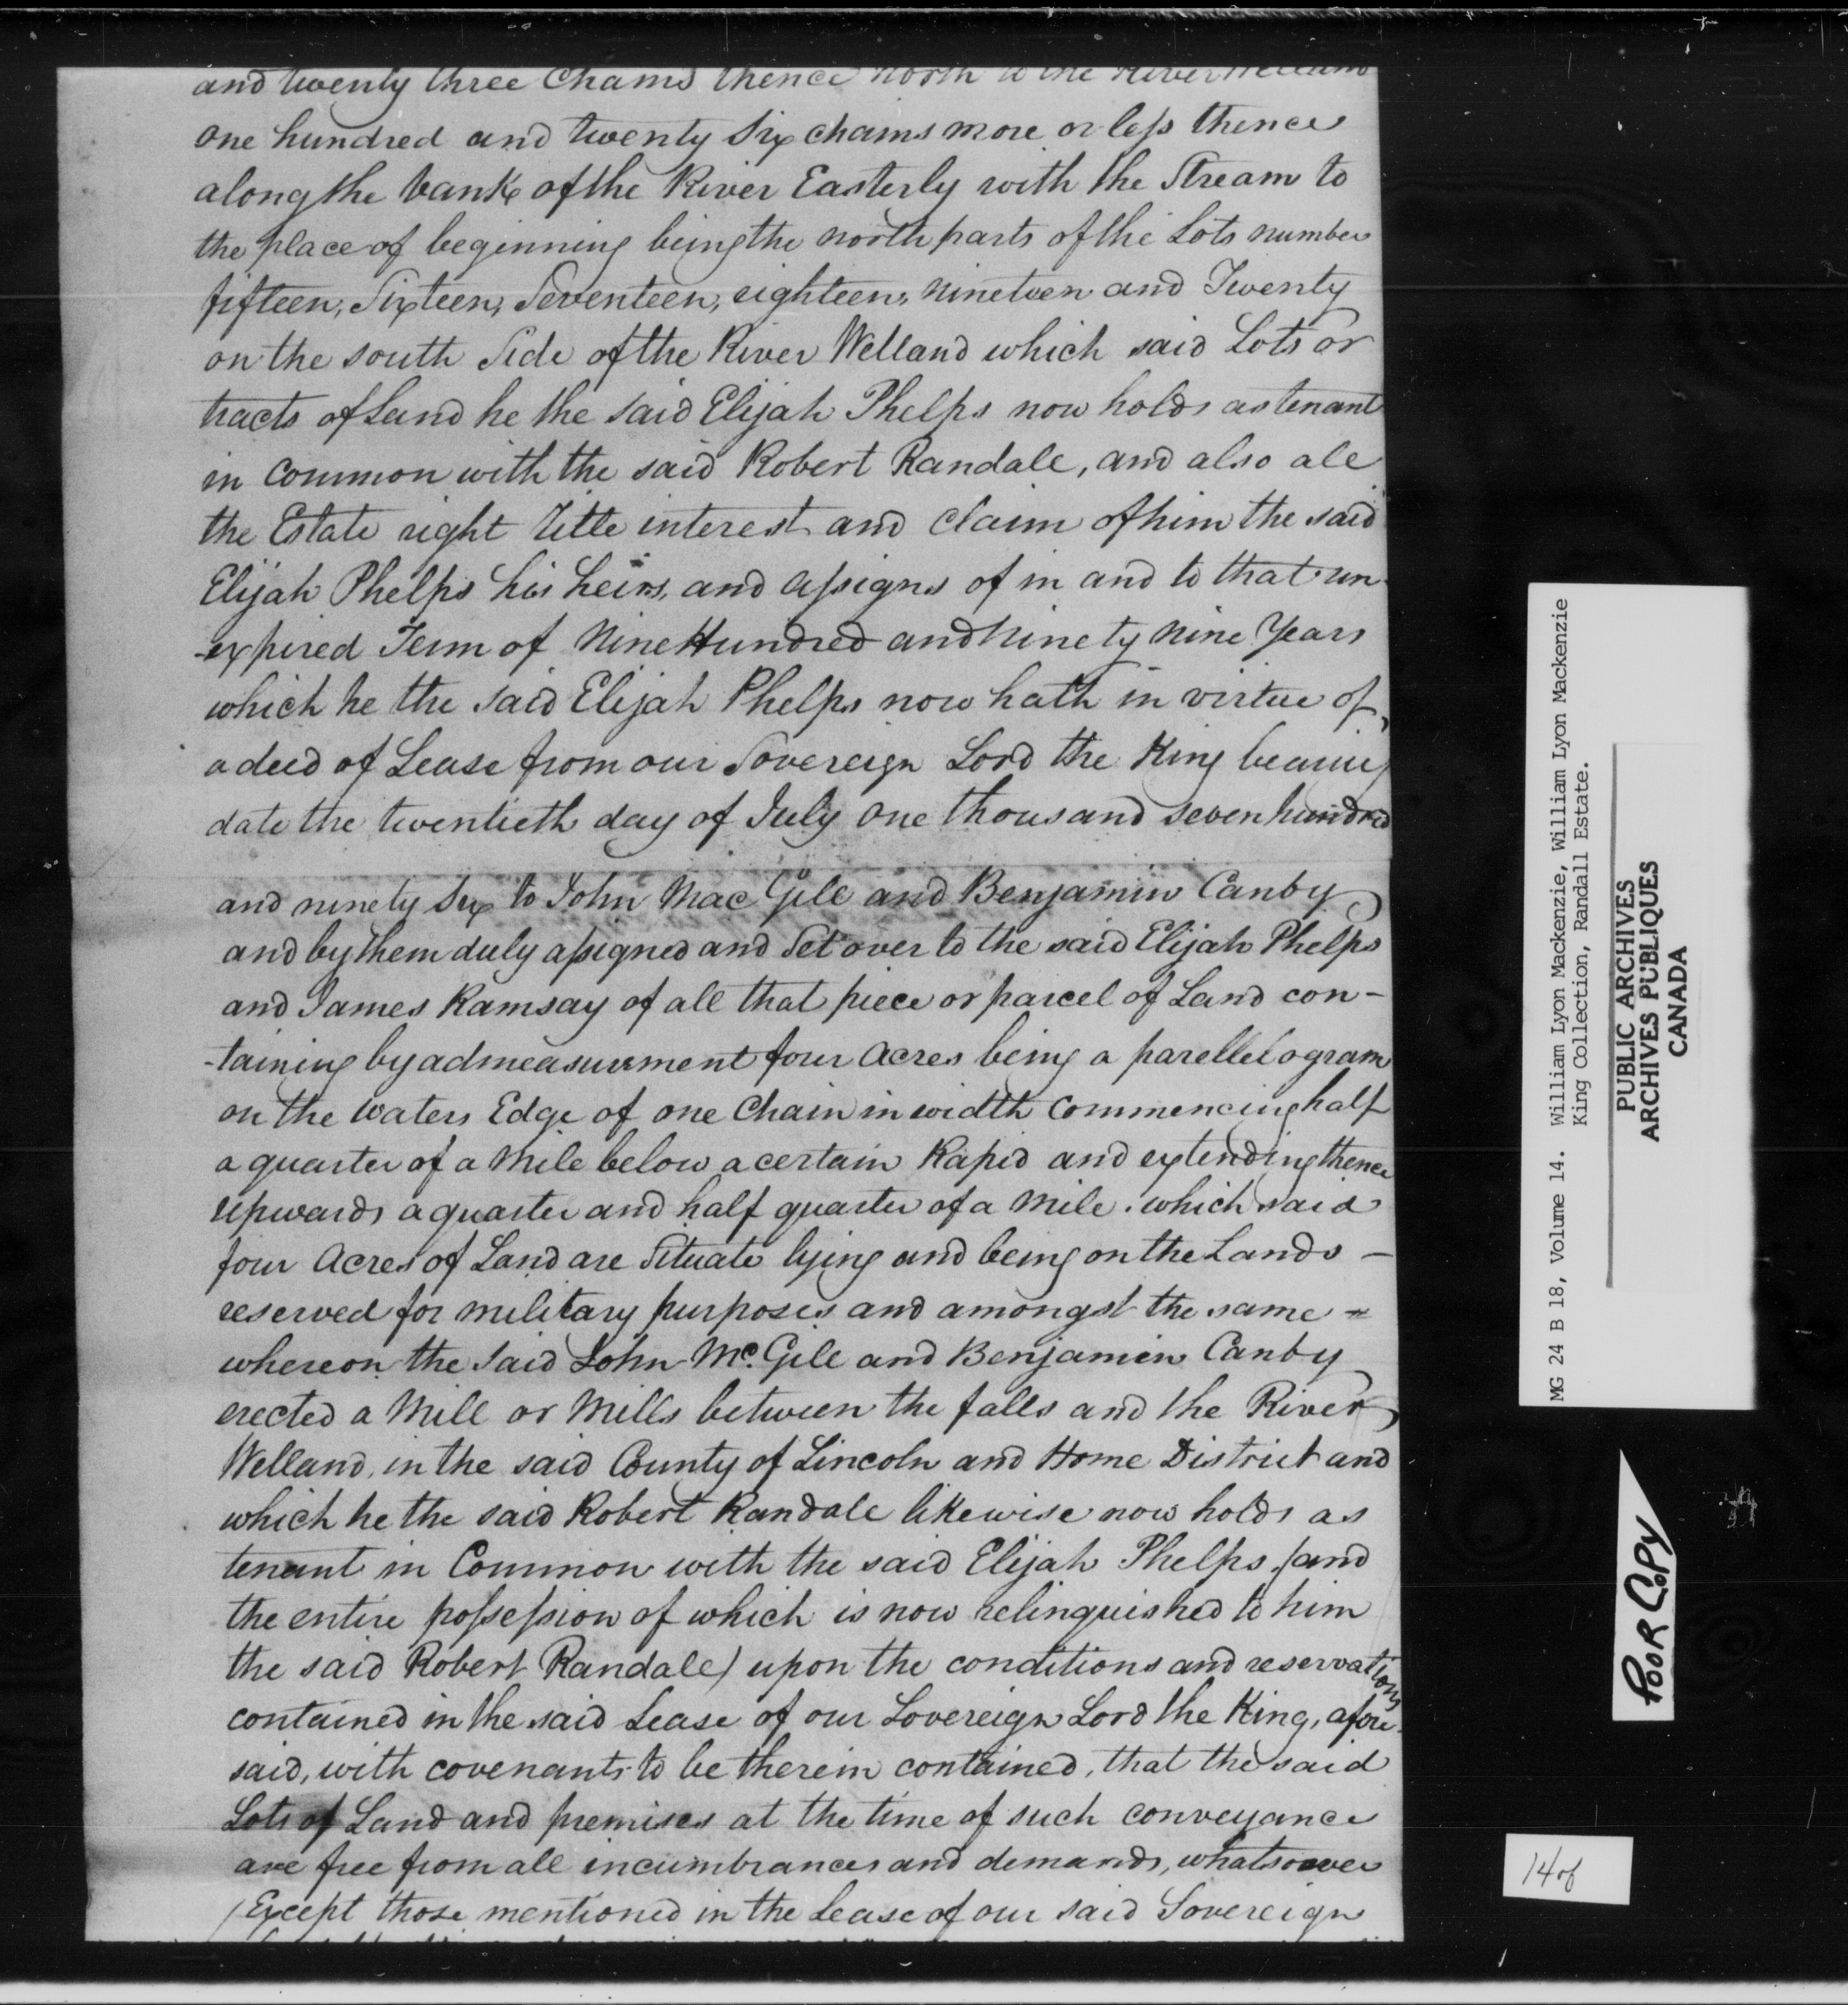 and twenty three Chains thence North to the River Welland
one hundred and twenty Six chains more or less thence
along the bank of the River Easterly with the Stream to
the place of beginning being the north parts of the Lots number
fifteen, Sixteen, Seventeen, eighteen, nineteen and Twenty
on the south Side of the River Welland which said Lots or
tracts of Land he the said Elijah Phelps now holds as tenant
in common with the said Robert Randale, and also all
the Estate right Title interest and claim of him the said
Elijah Phelps his heirs, and assigns of in and to that un-
-expired Term of Nine Hundred and Ninety Nine Years
which he the said Elijah Phelps now hath in virtue of,
a deed of Lease from our Sovereign Lord the King bearing
date the twentieth day of July one thousand seven hundred
and ninety Six to John Mac Gill and Benjamin Canby
and by them duly assigned and Set over to the said Elijah Phelps
and James Ramsay of all that piece or parcel of Land con-
-taining by admeasurment four Acres being a parellelogram
on the waters Edge of one Chain in width Commencing half
a quarter of a Mile below a certain Rapid and extending thence
upwards a quarter and half quarter of a Mile. which said
four Acres of Land are Situate lying and being on the Lands -
reserved for military purposes and amongst the same =
whereon the said John Mc. Gill and Benjamin Canby
erected a Mill or Mills between the falls and the River
Welland, in the said County of Lincoln and Home District and
which he the said Robert Randale likewise now holds as
tenant in Common with the said Elijah Phelps, (and
the entire possession of which is now relinquished to him
the said Robert Randale) upon the conditions and reservations
contained in the said Lease of our Sovereign Lord the King, afore-
said, with covenants to be therein contained, that the said
Lots of Land and premises at the time of such conveyance
are free from all incumbrances and demands, whatsoever
(Except those mentioned in the Lease of our said Sovereign
MG 24 B 18, Volume 14. William Lyon Mackenzie, William Lyon Mackenzie
King Collection, Randall Estate.
PUBLIC ARCHIVES
ARCHIVES PUBLIQUES
CANADA
POOR COPY
14 of